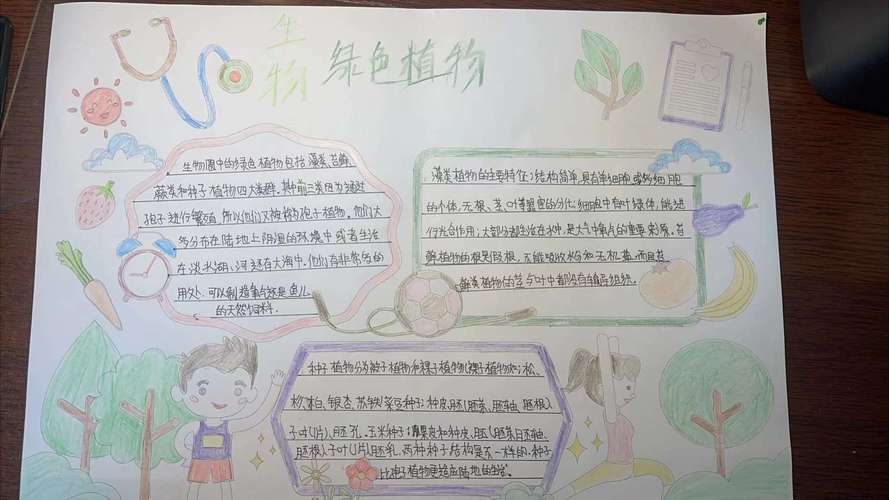 生物
绿色植物
生物圈中的绿色植物包括藻类、苔藓、
蕨类和种子植物四大类群。其中前三类因为通过
孢子进行繁殖,所以他们又被称为孢子植物。他们大
多分布在陆地上阴湿的环境中或者生活
在淡水湖、河还有大海中。他们有非常多的
用处,可以制造氧气还是鱼儿
的天然饲料.
藻类植物的主要特征:结构简单,具有单细胞或多细胞
的个体,无根、茎、叶等器官的分化;细胞中有叶绿体,能进
行光合作用;大部分都生活在水中,是大气中氧气的重要来源。苔
藓植物的根是假根,不能吸收水分和无机盐,而且苔
藓类植物的茎与叶中都没有输导组织.
种子植物分为被子植物和裸子植物(裸子植物如:松、
杉、柏、银杏、苏铁)菜豆种子:种皮、胚(胚芽、胚轴、胚根、
子叶(片)、胚孔。玉米种子:果皮和种皮、胚(胚芽、胚轴、
胚根、子叶(1片)、胚乳。两种种子结构是不一样的.种子
比孢子植物更适应陆地的生活。